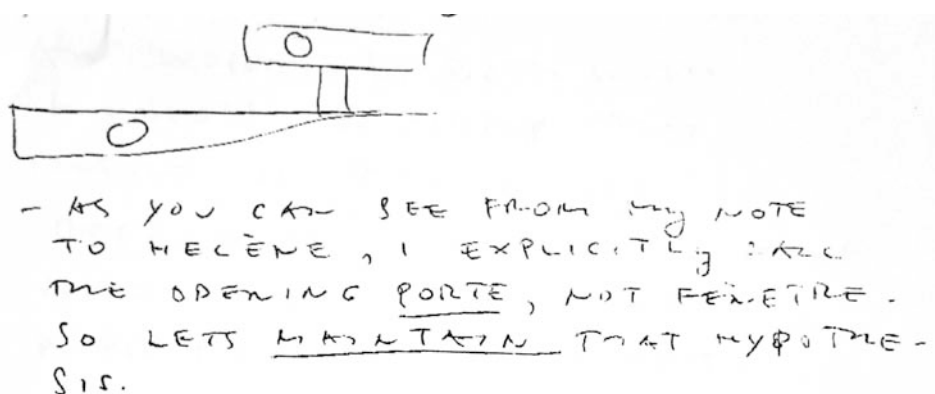 - AS YOU CAN SEE FROM MY NOTE
TO HELÈNE, I EXPLICITLY CALL
THE OPENING PORTE, NOT FENETRE.
SO LETS MAINTAIN THAT HYPOTHE-
SIS.